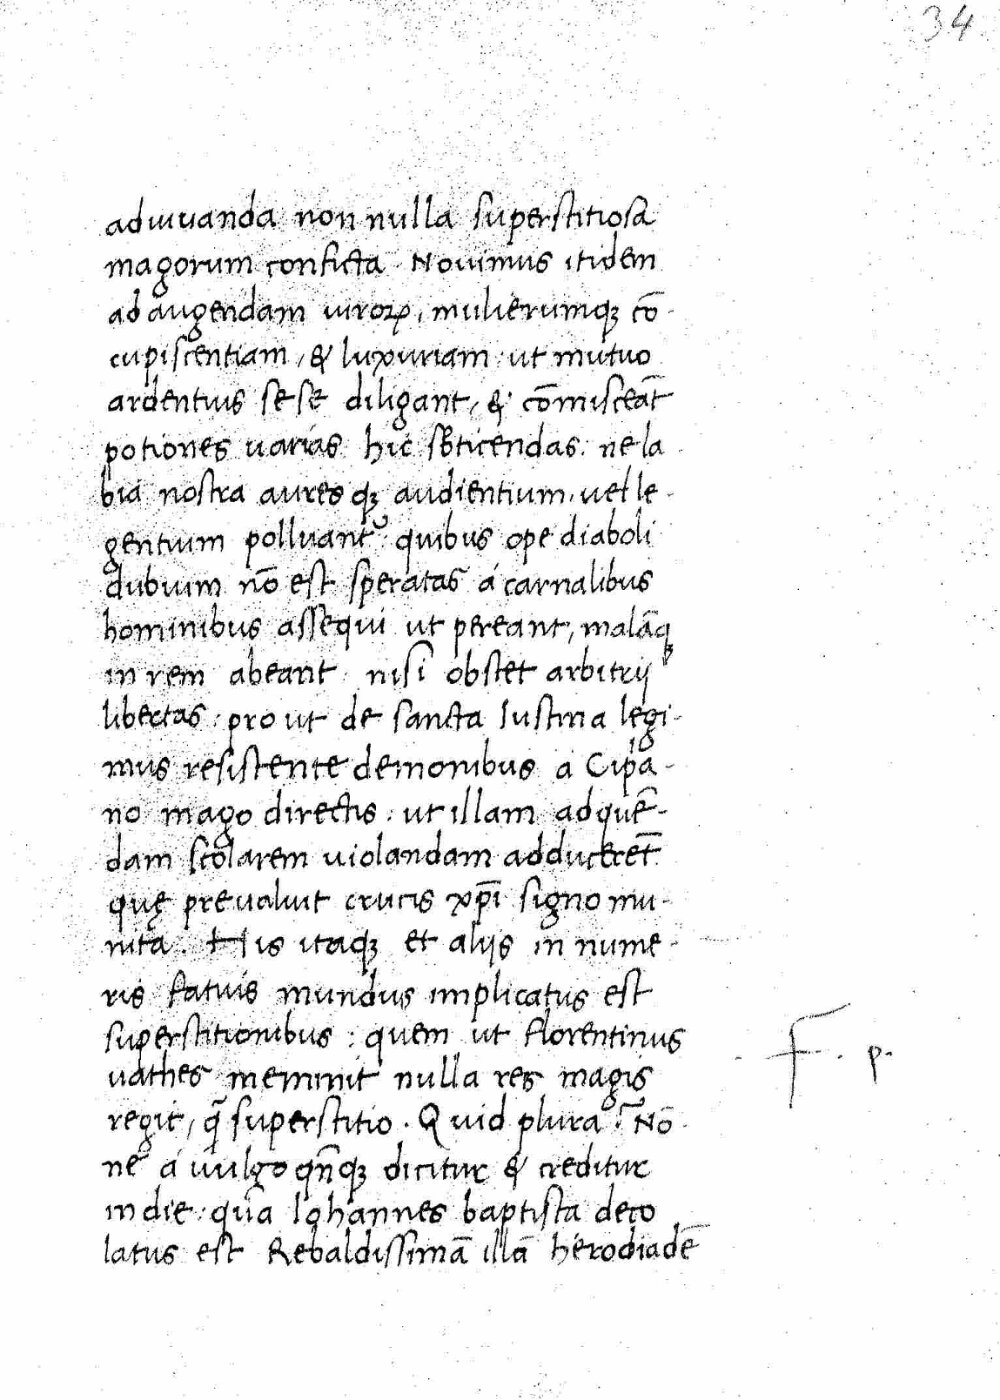 34
adiuuanda non nulla superstitiosa
magorum conficta. Nouimus itidem
ad augendam uiroꝝ, mulierumqꝫ cō-
cupiscentiam, & luxuriam: ut mutuo
ardentius sese diligant, & cōmisceāt
potiones uarias hic sbticendas. ne la
bia nostra auresqꝫ audientium, uel le-
gentium polluant᷑: quibus ope diaboli
dubium nō est speratas á carnalibus
hominibus assequi ut pereant, malāqꝫ
in rem abeant: nisi obstet arbitrij
libertas: pro ut de sancta Iustina legi-
mus resistente demonibus a Cipͥa-
no mago directis: ut illam ad quē-
dam scolarem uiolandam adducerēt:
quę preualuit crucis xp̄i signo mu-
nita. His itaqꝫ et alijs in nume-
ris fatuis mundus implicatus est
superstitionibus: quem ut florentinus
uathes meminit nulla res magis
regit, q̄ superstitio. Quid plura? Nō-
F. p.
né á uulgo qn̄qꝫ dicitur & creditur
in die: qua Iohannes baptista deco
latus est Rebaldissimā illā herodiadē